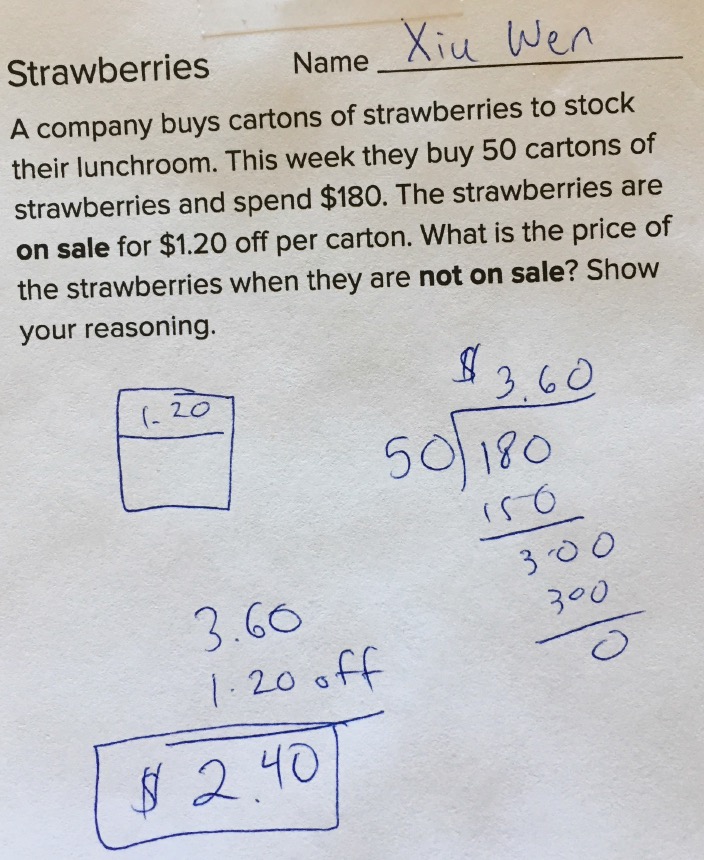 Strawberries Name Xiu Wen
A company buys cartons of strawberries to stock
their lunchroom. This week they buy 50 cartons of
strawberries and spend $180. The strawberries are
on sale for $1.20 off per carton. What is the price of
the strawberries when they are not on sale? Show
your reasoning.
$ 3.60
1.20
50 180
150
3.00
300
0
3.60
1.20 off
$ 2.40